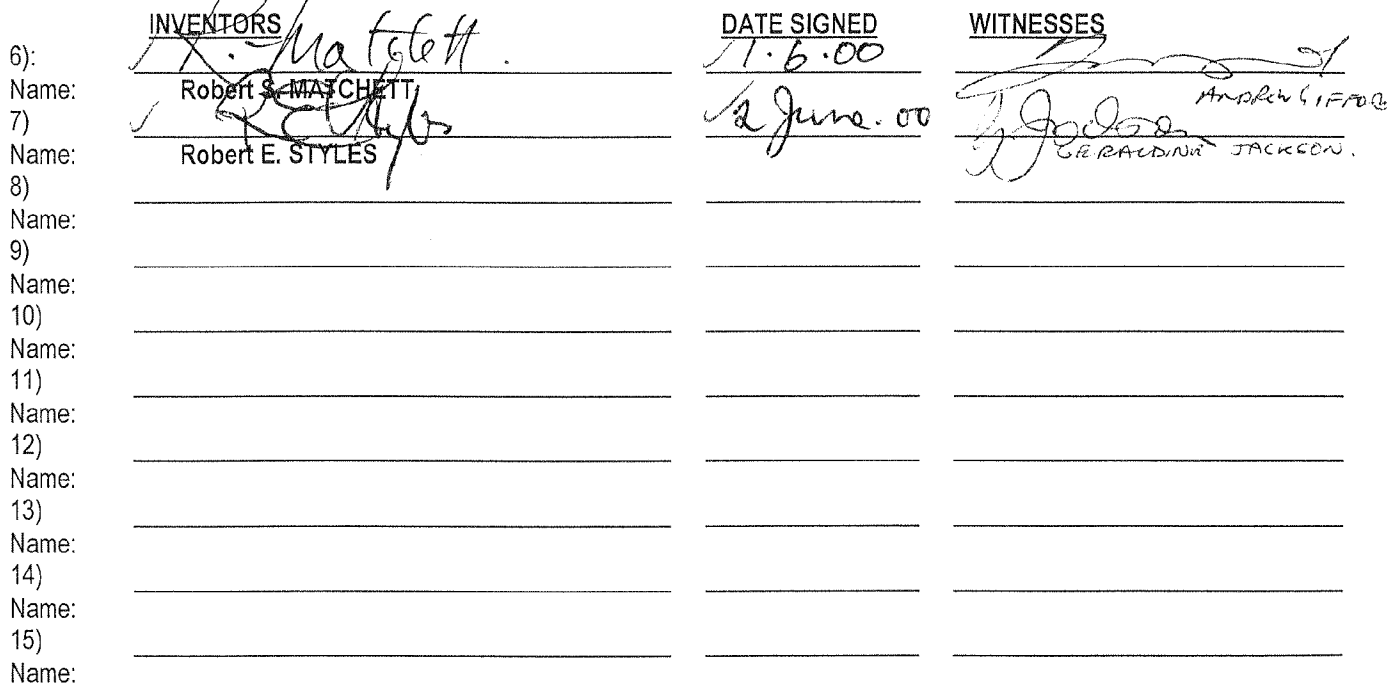 INVENTORS DATE SIGNED WITNESSES
6): R. Matchett. 1.6.00
Name: Robert S. MATCHETT ANDREW GIFFOR
7) R E Styles 2 June. 00 G Jackson
Name: Robert E. STYLES GERALDINE JACKSON.
8)
Name:
9)
Name:
10)
Name:
11)
Name:
12)
Name:
13)
Name:
14)
Name:
15)
Name: